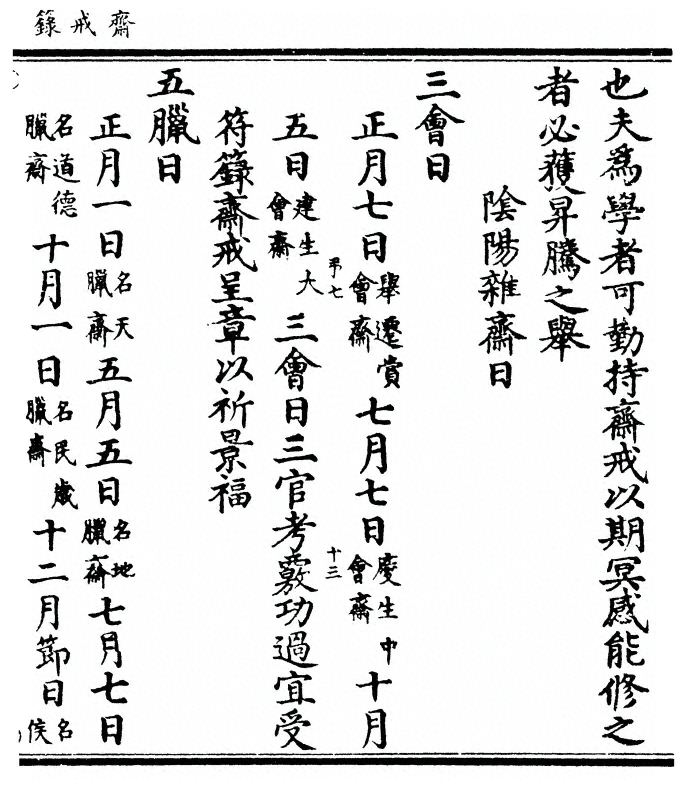 齋戒錄
也夫爲學者可勤持齋戒以期冥感能修之
者必獲昇騰之舉
陰陽雜齋日
三會日
正月七日舉遷賞會齋七月七日慶生中會齋十月
弔七
十三
五日建生大會齋三會日三官考覈功過宜受
符籙齋戒呈章以祈景福
五臘日
正月一日名天臘齋五月五日名地臘齋七月七日
名道德臘齋十月一日名民歲臘齋十二月節日名侯